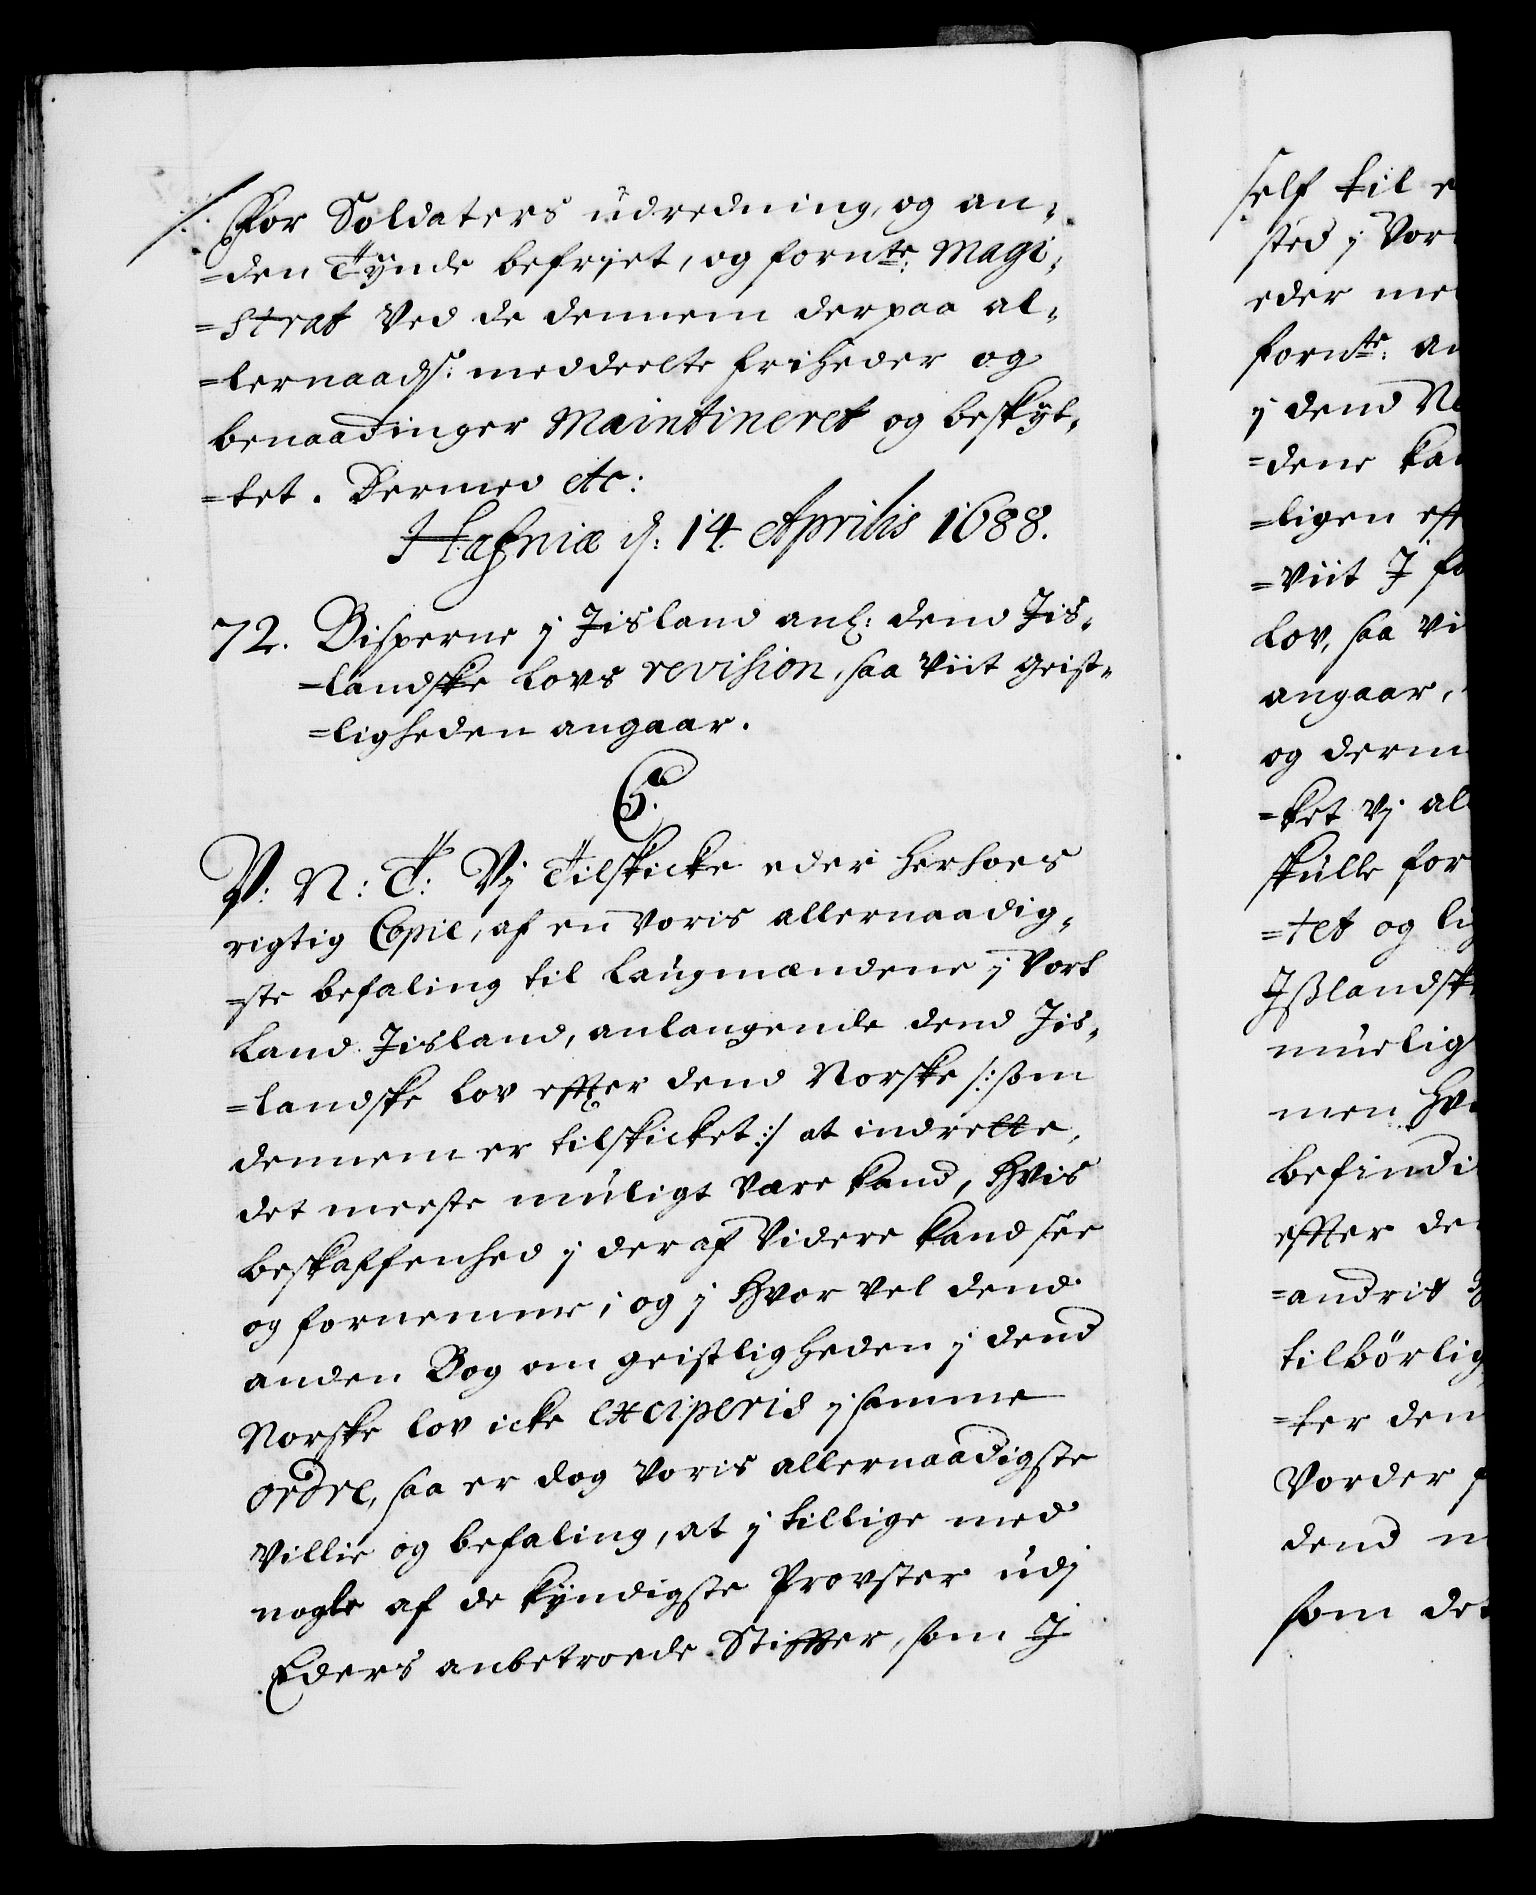 /: For Soldaters udredning, og an,,
=den Tynde befrjet, og fornte: Magi,,
=strat ved de dennem derpaa al,,
=lernaads: meddeelte friheder og
benaadinger Maintineret og beskyt,,
=tet. Dermed etc:
Hafniæ d: 14. Aprilis 1688.
72. Bisperne j Jisland anl: dend Jis,,
=landske lovs revision, saa viit geist,,
=ligheden angaar.
C5.
V: N: T: Vj Tilskicke eder herhoes
rigtig Copie, af en voris allernaadig,,
=ste befaling til laugmændene j vort
land Jisland, anlangende dend Jis,,
=landske lov effter dend Norske /: som
dennem er tilskicket :/ at indrette,
det meeste muligt være kand, hvis
beskaffenhed j der af videre kand see
og fornemme; og j hvor vel dend
anden Bog om geistligheden j dend
Norske lov icke exciperis j samme
ordre, saa er dog voris allernaadigste
villie og befaling, at j tillige med
nogle af de kyndigste Provster udj
Eders anbetroede Stiffter, som J
self til
sted j Vor
eder me
fornte: an
j dend No
=dene ka
=ligen eff
=viit J fo
lov, saa vi
angaar,
og derm
=ket vj al
skulle for
=tet og lig
Jsslandsk
muelig
men hv
befindi
effter de
=andrit
tilbörlig
=ter den
vorder f
dend n
som det